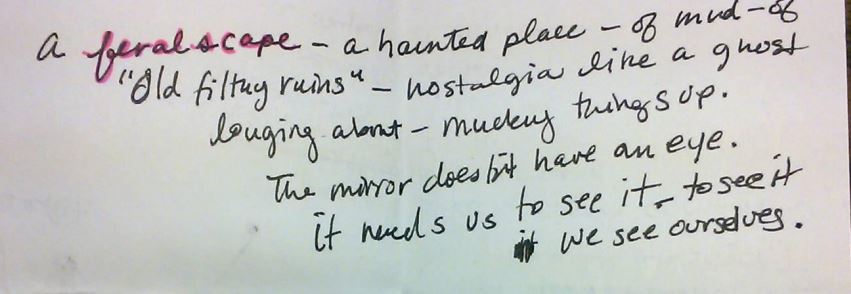 a feralscape – a haunted place – of mud – of
"Old filthy ruins" – nostalgia like a ghost
louging about – mucking things up.
The mirror doesn't have an eye.
it needs us to see it – to see it
it we see ourselves.